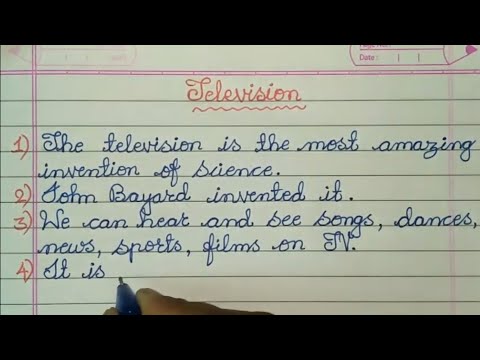 Date :
Television
1) The television is the most amazing
invention of science.
2) John Bayard invented it.
3) We can hear and see songs, dances,
news, sports, films on TV.
4) It is